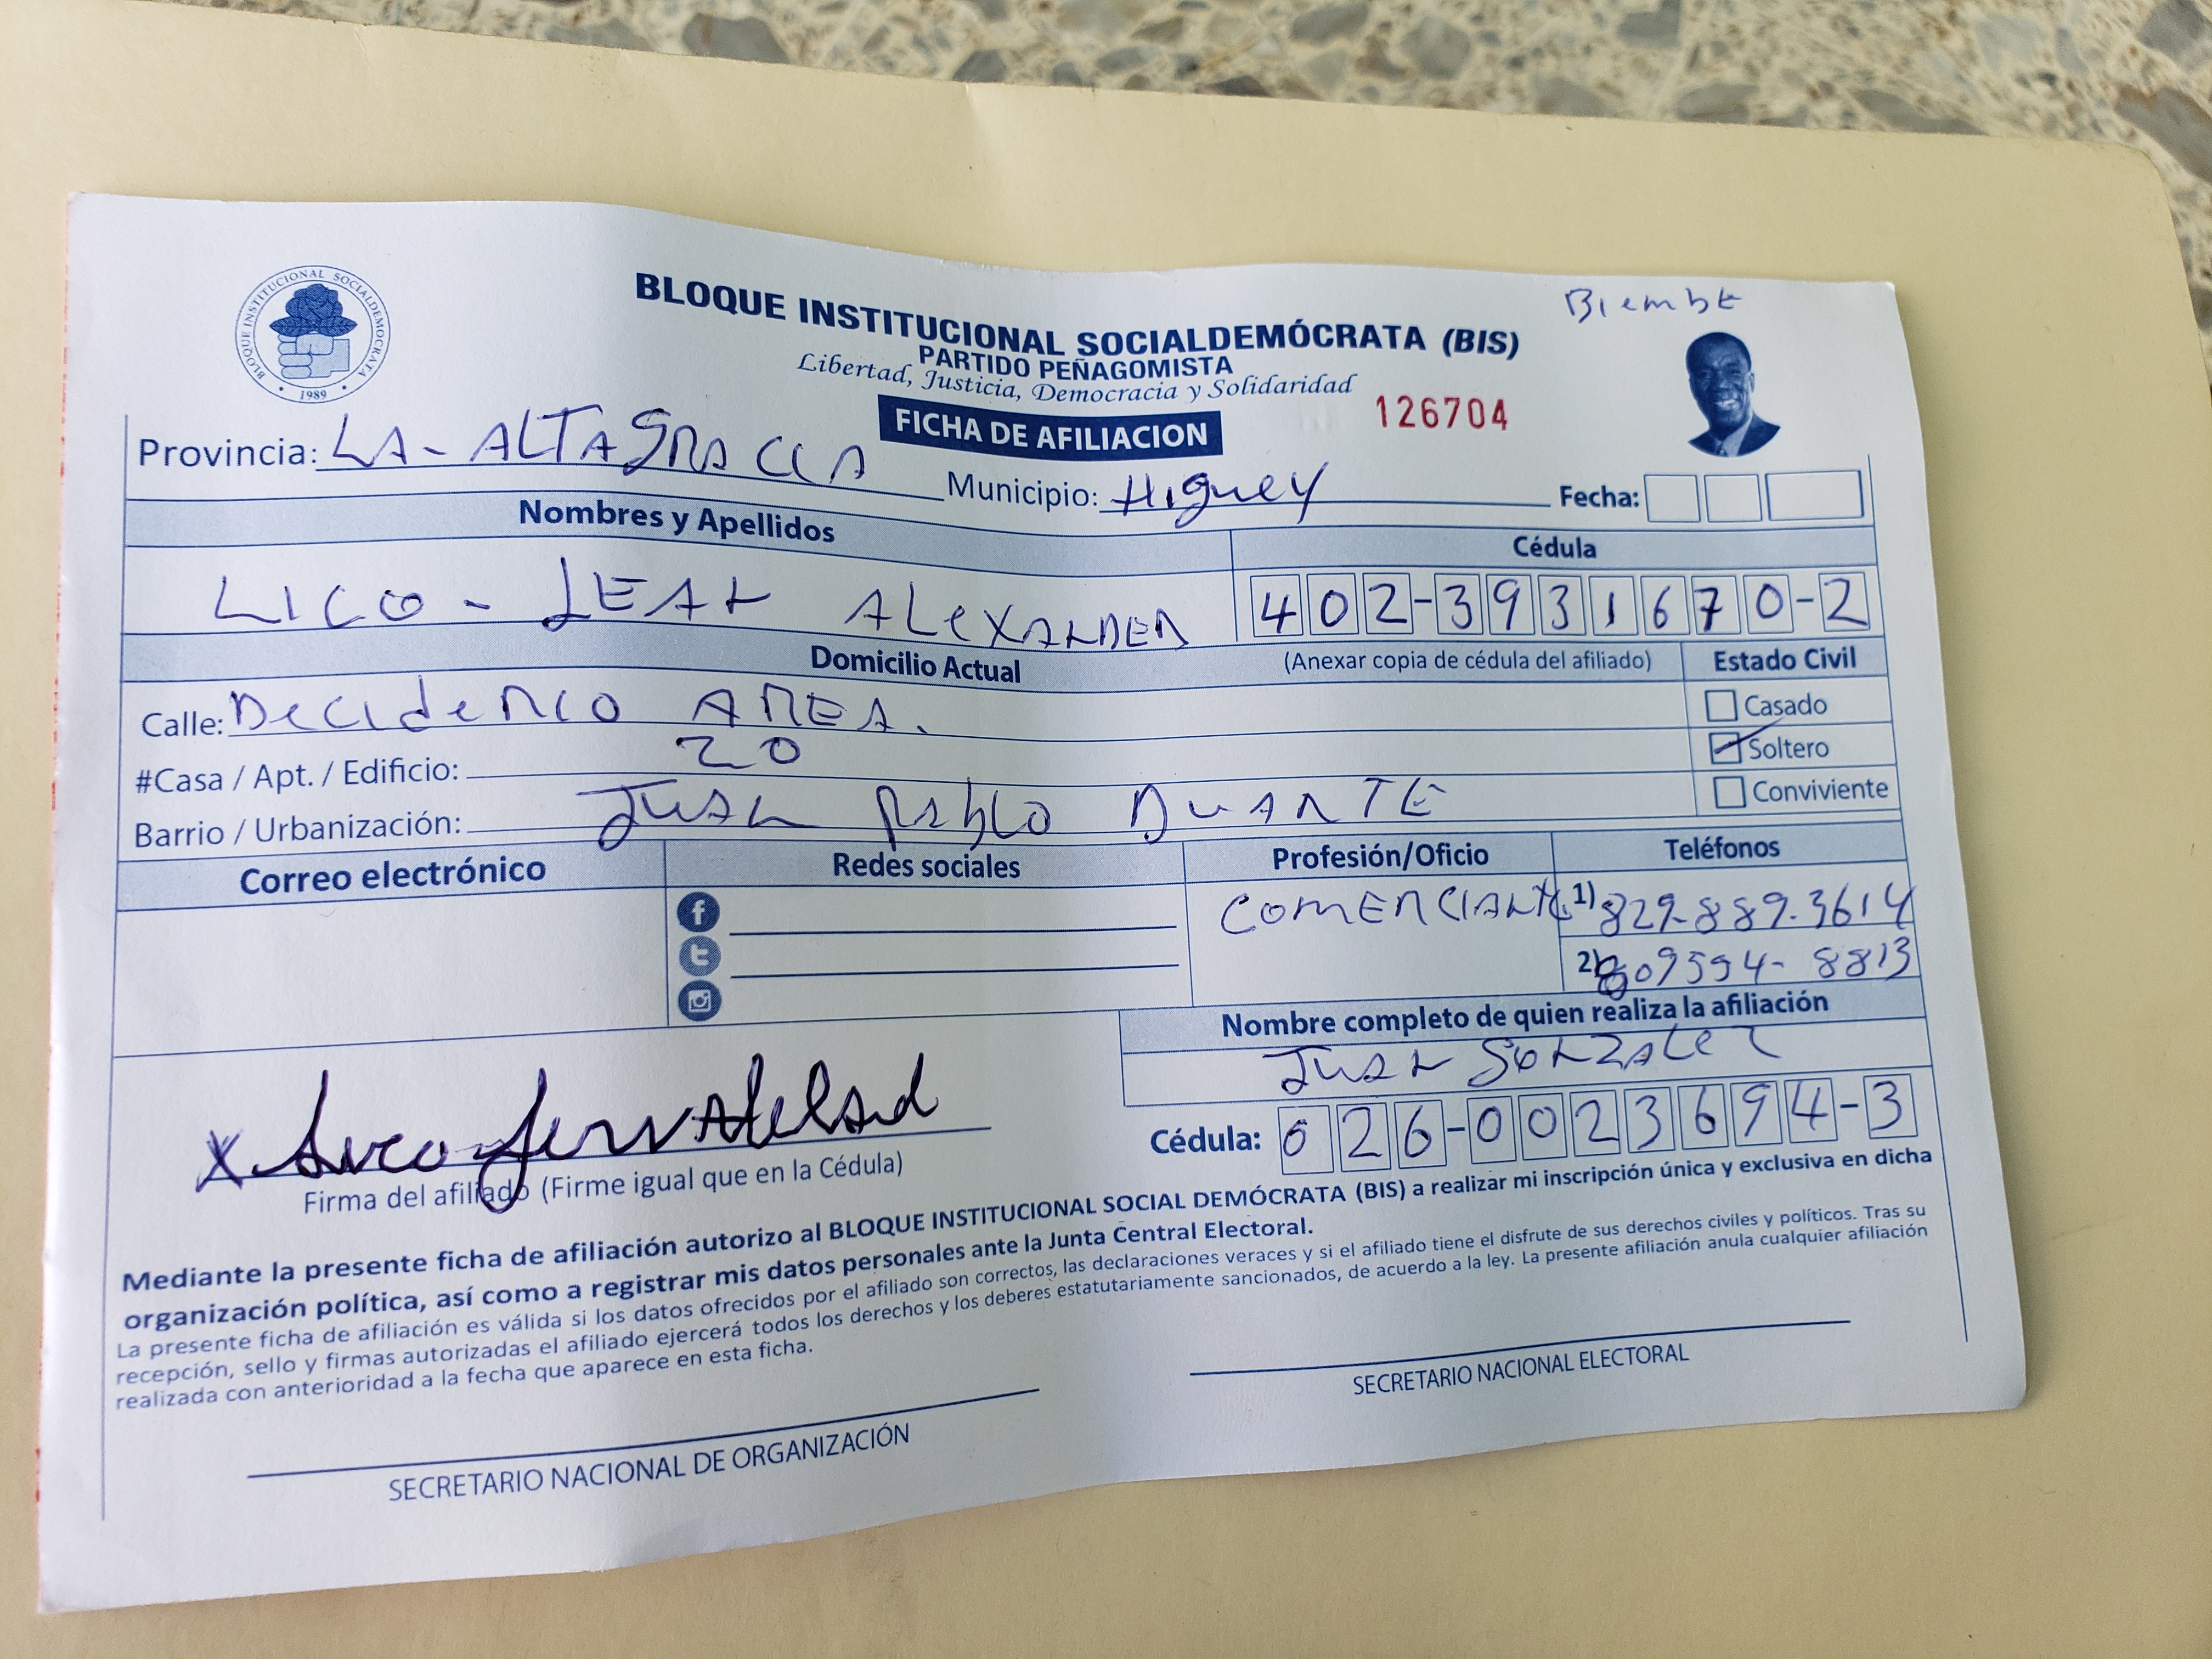 BLOQUE INSTITUCIONAL SOCIALDEMOCRATA
1989
BLOQUE INSTITUCIONAL SOCIALDEMÓCRATA (BIS)
PARTIDO PEÑAGOMISTA
Libertad, Justicia, Democracia y Solidaridad
FICHA DE AFILIACION
126704
Provincia: LA-ALTAGRACIA Municipio: Higuey Fecha:
Nombres y Apellidos
Cédula
LICO - JEAN ALEXANDER
402-3931670-2
Domicilio Actual
(Anexar copia de cédula del afiliado)
Estado Civil
Calle: Deciderio AREA.
Casado
#Casa / Apt. / Edificio: 20
Soltero
Barrio / Urbanización: JUAN Pablo DUARTE
Conviviente
Correo electrónico
Redes sociales
Profesión/Oficio
Teléfonos
COMERCIANTE
1) 829-889-3614
2) 809594-8813
Nombre completo de quien realiza la afiliación
JUAN GONZALEZ
Cédula: 026-0023694-3
X
Firma del afiliado (Firme igual que en la Cédula)
Mediante la presente ficha de afiliación autorizo al BLOQUE INSTITUCIONAL SOCIAL DEMÓCRATA (BIS) a realizar mi inscripción única y exclusiva en dicha
organización política, así como a registrar mis datos personales ante la Junta Central Electoral.
La presente ficha de afiliación es válida si los datos ofrecidos por el afiliado son correctos, las declaraciones veraces y si el afiliado tiene el disfrute de sus derechos civiles y políticos. Tras su
recepción, sello y firmas autorizadas el afiliado ejercerá todos los derechos y los deberes estatutariamente sancionados, de acuerdo a la ley. La presente afiliación anula cualquier afiliación
realizada con anterioridad a la fecha que aparece en esta ficha.
SECRETARIO NACIONAL DE ORGANIZACIÓN
SECRETARIO NACIONAL ELECTORAL